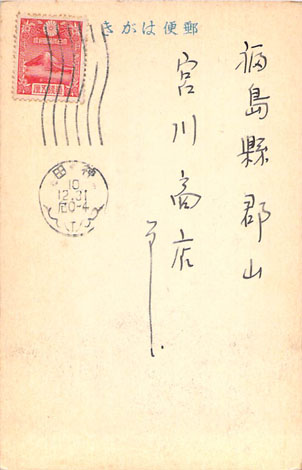 郵便はがき
福島縣郡山
宮川商店
行
神田
10
12.31
后0-4